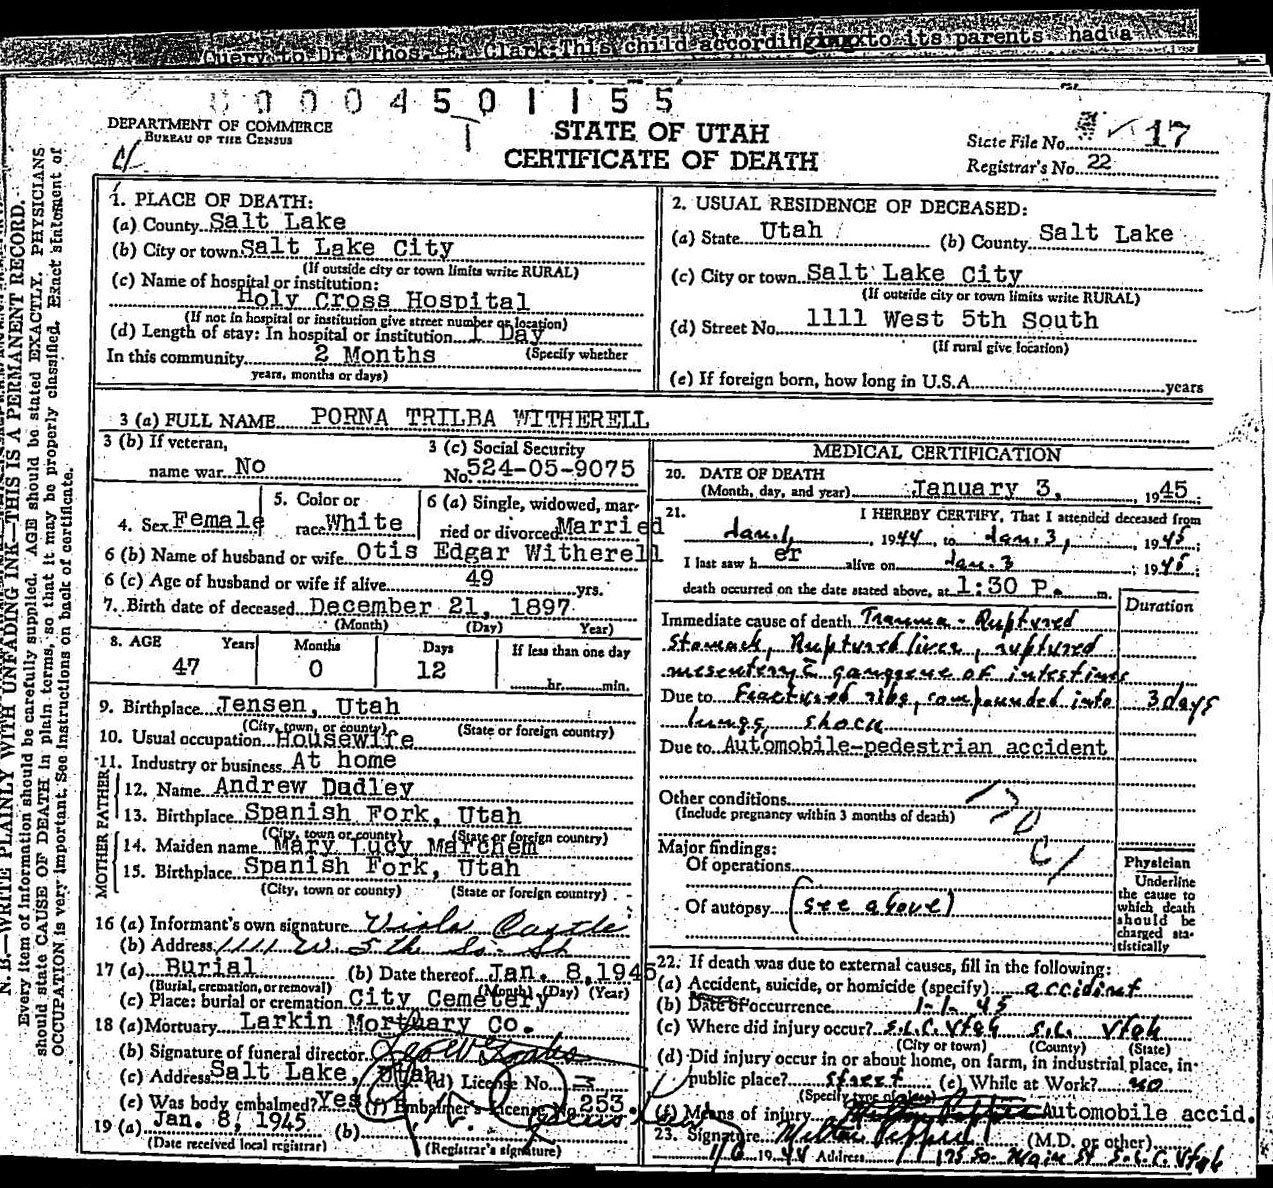 Query to Dr. Thos. E. Clark: This child according to its parents had a
0 0 0 0 4 5 0 1 1 5 5
DEPARTMENT OF COMMERCE
BUREAU OF THE CENSUS
STATE OF UTAH
CERTIFICATE OF DEATH
State File No. 17
Registrar's No. 22
N. B.—WRITE PLAINLY WITH UNFADING INK—THIS IS A PERMANENT RECORD.
Every item of information should be carefully supplied. AGE should be stated EXACTLY. PHYSICIANS
should state CAUSE OF DEATH in plain terms, so that it may be properly classified. Exact statement of
OCCUPATION is very important. See instructions on back of certificate.
1. PLACE OF DEATH:
(a) County Salt Lake
(b) City or town Salt Lake City
(If outside city or town limits write RURAL)
(c) Name of hospital or institution:
Holy Cross Hospital
(If not in hospital or institution give street number or location)
(d) Length of stay: In hospital or institution 1 Day
In this community 2 Months (Specify whether
years, months or days)
2. USUAL RESIDENCE OF DECEASED:
(a) State Utah (b) County Salt Lake
(c) City or town Salt Lake City
(If outside city or town limits write RURAL)
(d) Street No. 1111 West 5th South
(If rural give location)
(e) If foreign born, how long in U.S.A. years
3 (a) FULL NAME PORNA TRILBA WITHERELL
3 (b) If veteran,
name war No
3 (c) Social Security
No. 524-05-9075
4. Sex Female
5. Color or
race White
6 (a) Single, widowed, mar-
ried or divorced Married
6 (b) Name of husband or wife Otis Edgar Witherell
6 (c) Age of husband or wife if alive 49 yrs.
7. Birth date of deceased December 21, 1897
(Month) (Day) Year)
8. AGE Years Months Days If less than one day
47 0 12 hr. min.
9. Birthplace Jensen, Utah
(City, town, or county) (State or foreign country)
10. Usual occupation Housewife
11. Industry or business At home
FATHER
12. Name Andrew Dudley
13. Birthplace Spanish Fork, Utah
(City, town or county) (State or foreign country)
MOTHER
14. Maiden name Mary Lucy Marchem
15. Birthplace Spanish Fork, Utah
(City, town or county) (State or foreign country)
16 (a) Informant's own signature Viola Castle
(b) Address 1111 W. 5th So. St
17 (a) Burial (b) Date thereof Jan. 8, 1945
(Burial, cremation, or removal) (Month) (Day) (Year)
(c) Place: burial or cremation City Cemetery
18 (a) Mortuary Larkin Mortuary Co.
(b) Signature of funeral director
(c) Address Salt Lake, Utah (d) License No.
(e) Was body embalmed? Yes (f) Embalmer's License No. 253
19 (a) Jan. 8, 1945 (b)
(Date received local registrar) (Registrar's signature)
MEDICAL CERTIFICATION
20. DATE OF DEATH
(Month, day, and year) January 3, 1945
21. I HEREBY CERTIFY, That I attended deceased from
Jan. 1, 1944, to Jan. 3, 1945;
I last saw her alive on Jan. 3 ; 1945
death occurred on the date stated above, at 1:30 P. m.
Duration
Immediate cause of death Trauma - Ruptured
stomach, Ruptured liver, ruptured
mesentery c̄ gangrene of intestine
Due to Fractured ribs, compounded into 3 days
lungs, shock
Due to Automobile-pedestrian accident
Other conditions
(Include pregnancy within 3 months of death)
170
c/
Major findings:
Of operations
Of autopsy (see above)
Physician
Underline
the cause to
which death
should be
charged sta-
tistically
22. If death was due to external causes, fill in the following:
(a) Accident, suicide, or homicide (specify) accident
(b) Date of occurrence 1-1-45
(c) Where did injury occur? S.L.C. Utah S.L. Utah
(City or town) (County) (State)
(d) Did injury occur in or about home, on farm, in industrial place, in
public place? street (e) While at Work? no
(Specify type of place)
(f) Means of injury Automobile accid.
23. Signature Milton Pepper (M.D. or other)
1/6 1944 Address 175 So. Main St S.L.C. Utah